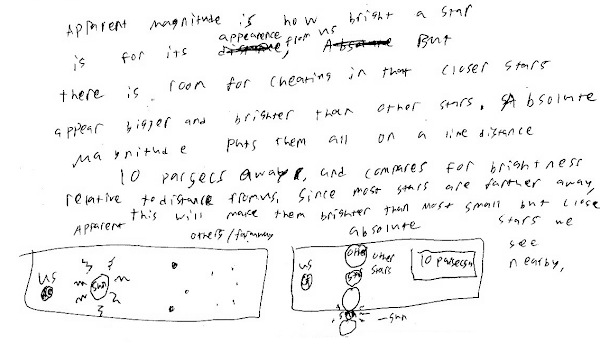 Apparent magnitude is how bright a star
is for its appearence from us, But
there is room for cheating in that closer stars
appear bigger and brighter than other stars. Absolute
Magnitude puts them all on a line distance
10 parsecs away, and compares for brightness
relative to distance from us. Since most stars are farther away,
this will make them brighter than most small but close
stars we
see
nearby.
Apparent
others/faraway
us
sun
absolute
us
other
stars
10 parsecs
sun